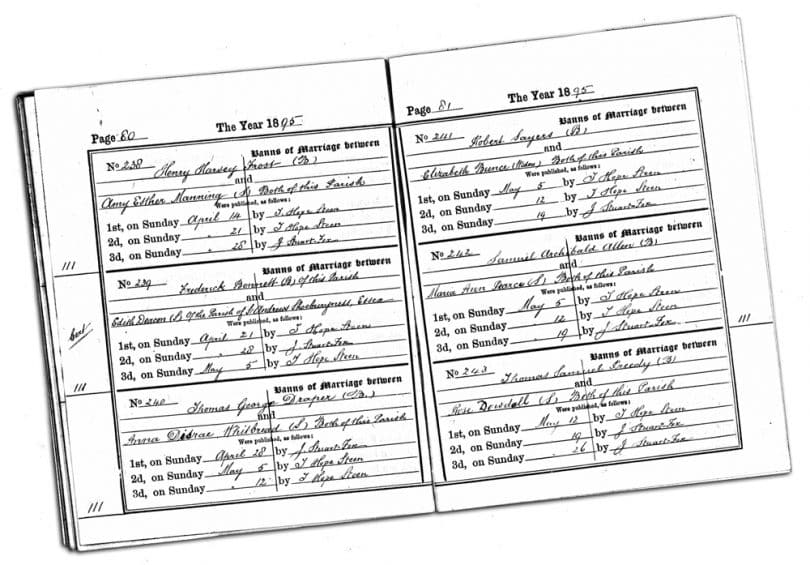 Page 80
The Year 1895
Banns of Marriage between
No 238 Henry Harvey Frost (B)
and
Amy Esther Manning (S) Both of this Parish
Were published, as follows:
1st, on Sunday April 14 by T Hope Steen
2d, on Sunday " 21 by T Hope Steen
3d, on Sunday " 28 by J Stuart Fox
111
Banns of Marriage between
No 239 Frederick Bonnett (B) of this Parish
and
Edith Deacon (S) Of the Parish of St Andrews Shoeburyness, Essex
Were published, as follows:
1st, on Sunday April 21 by T Hope Steen
2d, on Sunday " 28 by J. Stuart Fox
3d, on Sunday May 5 by T Hope Steen
Cert
111
Banns of Marriage between
No 240 Thomas George Draper (B.)
and
Whitbread (S) Both of this Parish
Were published, as follows:
1st, on Sunday April 28 by J. Stuart Fox
2d, on Sunday May 5 by T Hope Steen
3d, on Sunday " 12 by T Hope Steen
111
Page 81
The Year 1895
Banns of Marriage between
No 241 Robert Sayers (B)
and
Elizabeth Bunce (Widow) Both of this Parish
Were published, as follows:
1st, on Sunday May 5 by T Hope Steen
2d, on Sunday " 12 by T Hope Steen
3d, on Sunday " 19 by J Stuart Fox
Banns of Marriage between
No 242 Samuel Archibald Allen (B)
and
Maria Ann Pearce (S) Both of this Parish
Were published, as follows:
1st, on Sunday May 5 by T Hope Steen
2d, on Sunday " 12 by T Hope Steen
3d, on Sunday " 19 by J Stuart Fox
111
Banns of Marriage between
No 243 Thomas Samuel (B)
and
Rose Dowdall (S) Both of this Parish
Were published, as follows:
1st, on Sunday May 12 by T Hope Steen
2d, on Sunday " 19 by J Stuart Fox
3d, on Sunday " 26 by J Stuart Fox